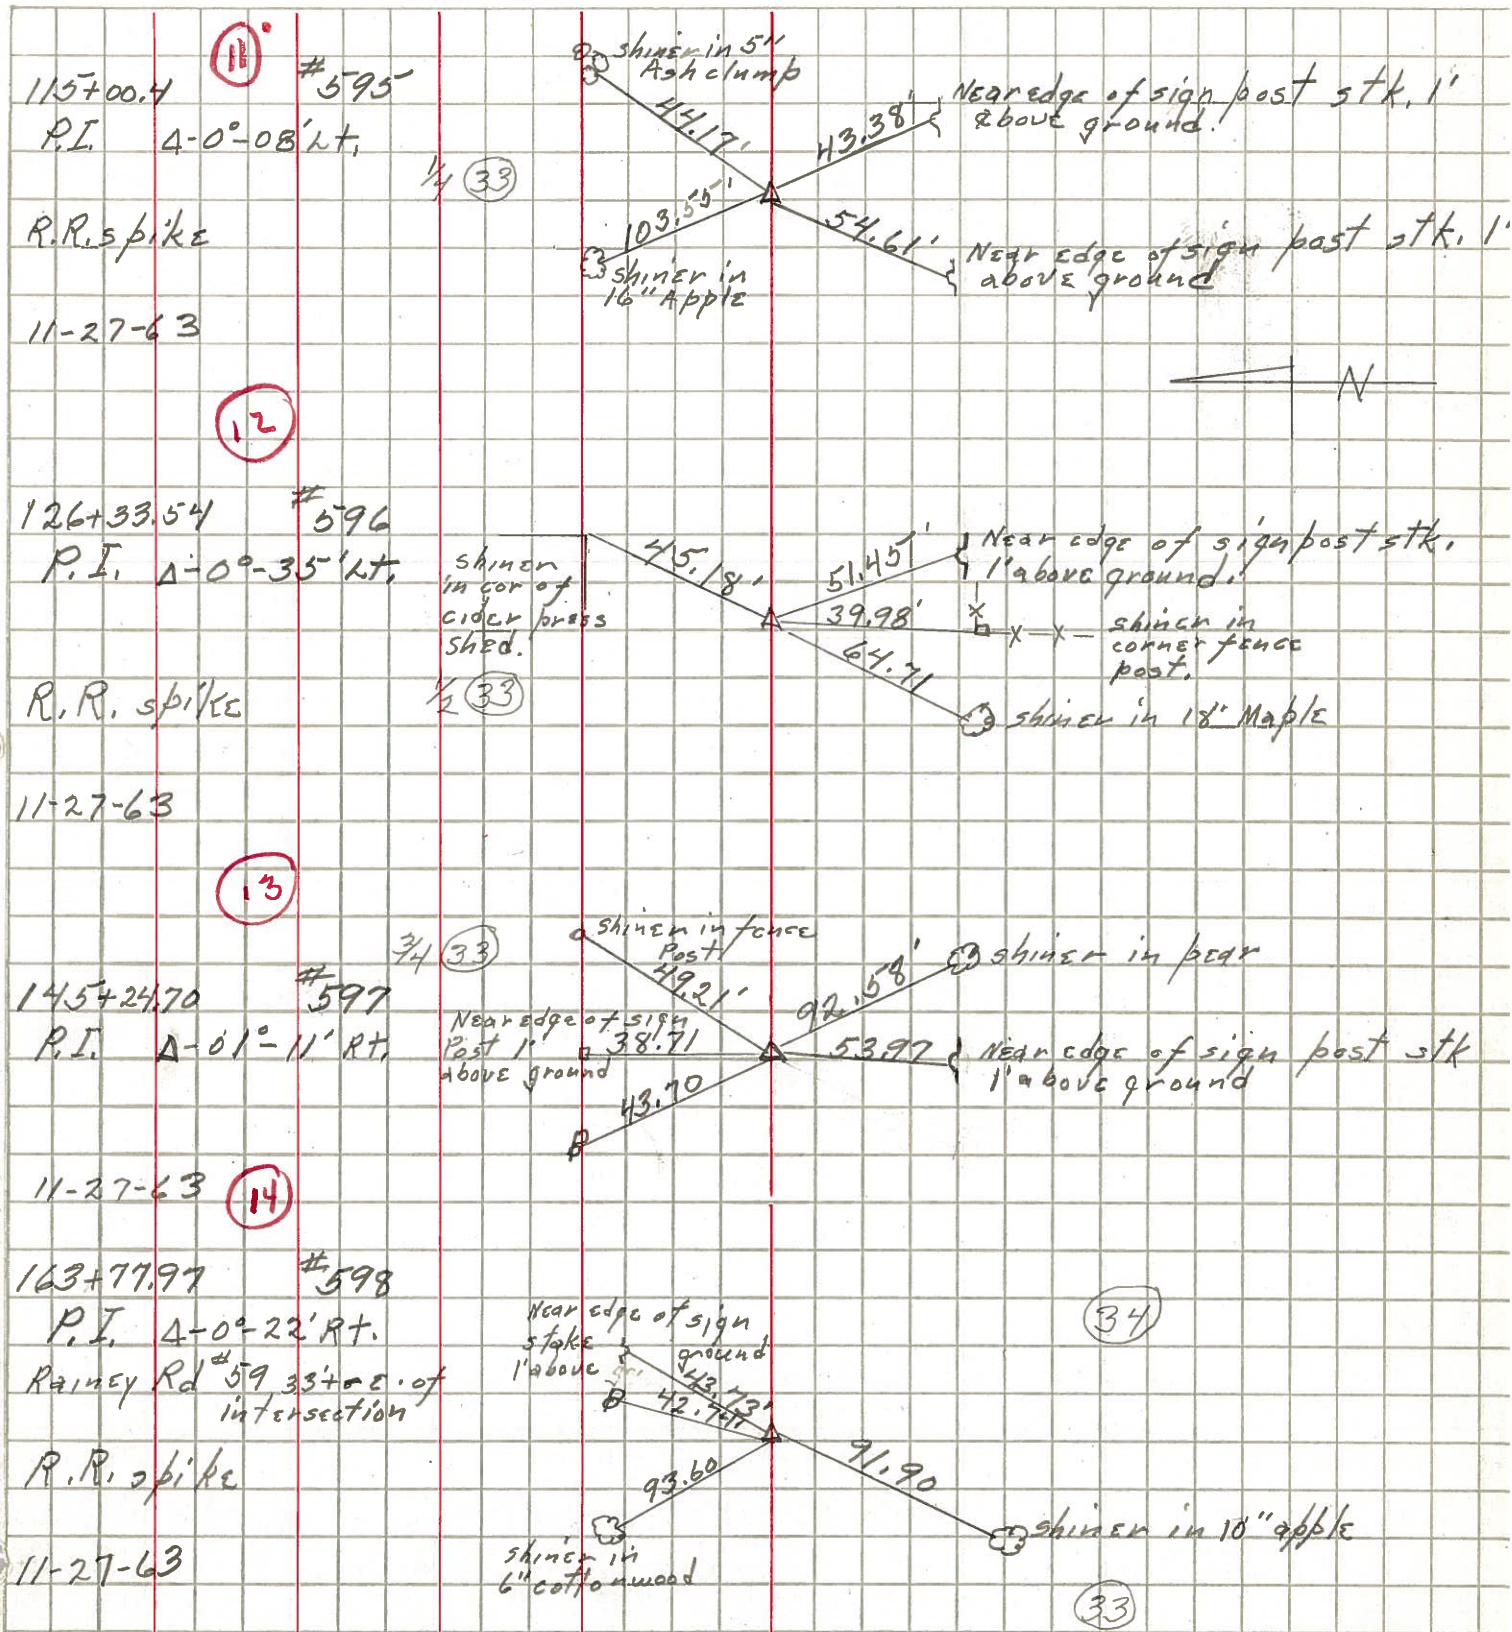 11
115+00.4 #595
P.I. Δ-0°-08' Lt.
R.R. spike
11-27-63
1/4 33
shiner in 5"
Ash clump
44.17'
43.38'
Near edge of sign post stk. 1'
above ground.
103.55'
shiner in
16" Apple
54.61'
Near edge of sign post stk. 1'
above ground
N
12
126+33.54 #596
P.I. Δ-0°-35' Lt.
R.R. spike
11-27-63
shiner
in cor of
cider press
shed.
1/2 33
45.18'
51.45'
Near edge of sign post stk.
1' above ground.
39.98'
x
x-x-
shiner in
corner fence
post.
64.71
shiner in 18" Maple
13
145+24.70 #597
P.I. Δ-01°-11' Rt.
11-27-63
3/4 33
shiner in fence
Post
49.21'
92.58'
shiner in pear
Near edge of sign
Post 1'
above ground
38.71
53.97
Near edge of sign post stk
1' above ground
43.70
14
163+77.97 #598
P.I. Δ-0°-22' Rt.
Rainey Rd #59 33'± E. of
intersection
R.R. spike
11-27-63
Near edge of sign
stake
1' above
ground
43.73'
93.60
shiner in
6" cottonwood
91.90
shiner in 10" apple
34
33